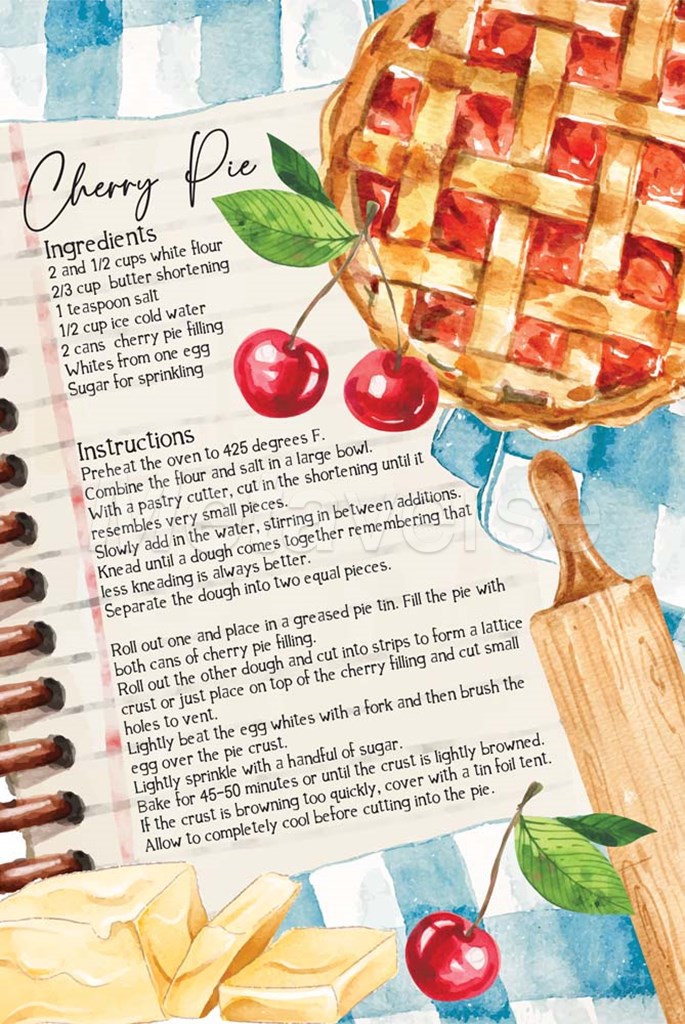 Cherry Pie
Ingredients
2 and 1/2 cups white flour
2/3 cup butter shortening
1 teaspoon salt
1/2 cup ice cold water
2 cans cherry pie filling
Whites from one egg
Sugar for sprinkling
Instructions
Preheat the oven to 425 degrees F.
Combine the flour and salt in a large bowl.
With a pastry cutter, cut in the shortening until it
resembles very small pieces.
Slowly add in the water, stirring in between additions.
Knead until a dough comes together remembering that
less kneading is always better.
Separate the dough into two equal pieces.
Roll out one and place in a greased pie tin. Fill the pie with
both cans of cherry pie filling.
Roll out the other dough and cut into strips to form a lattice
crust or just place on top of the cherry filling and cut small
holes to vent.
Lightly beat the egg whites with a fork and then brush the
egg over the pie crust.
Lightly sprinkle with a handful of sugar.
Bake for 45-50 minutes or until the crust is lightly browned.
If the crust is browning too quickly, cover with a tin foil tent.
Allow to completely cool before cutting into the pie.
Metaverse